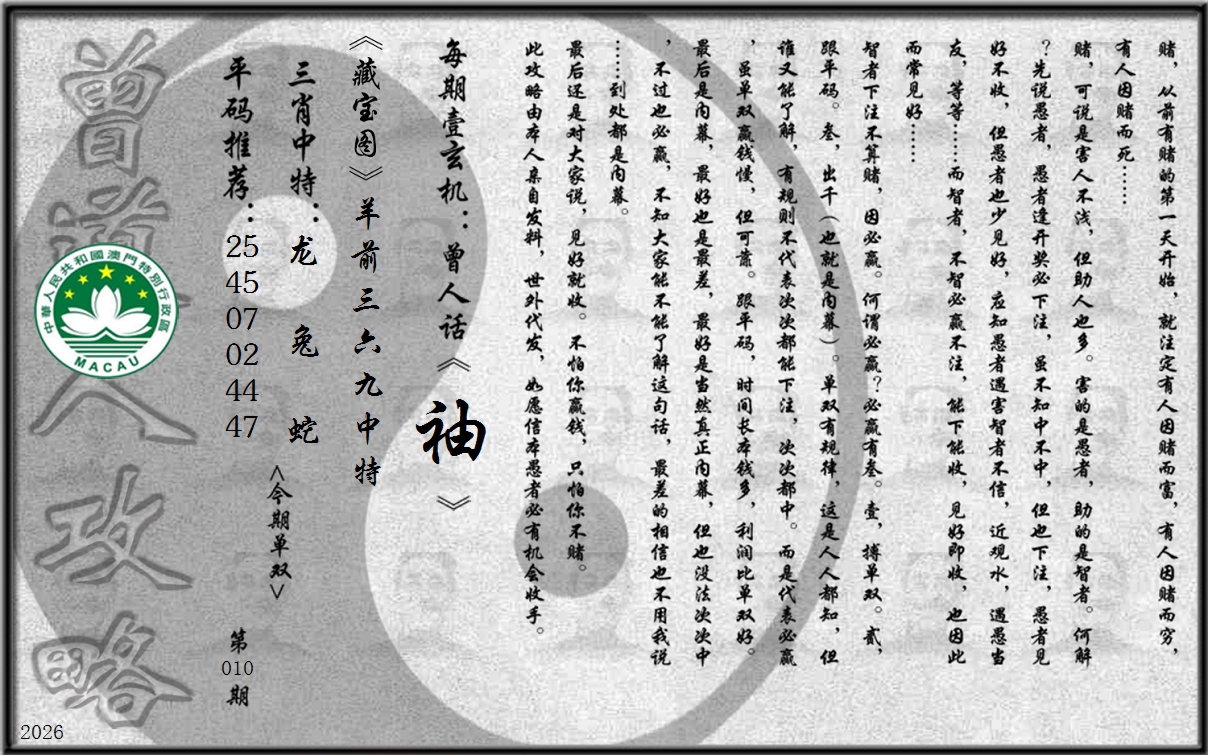 赌，从前有赌的第一天开始，就注定有人因赌而富，有人因赌而穷，
有人因赌而死……
赌，可说是害人不浅，但助人也多。害的是愚者，助的是智者。何解
？先说愚者，愚者逢开奖必下注，虽不知中不中，但也下注，愚者见
好不收，但愚者也少见好，应知愚者遇害智者不信，近观水，遇愚当
友，等等……而智者，不智必赢不注，能下能收，见好即收，也因此
而常见好……
智者下注不算赌，因必赢。何谓必赢？必赢有叁。壹，搏单双。贰，
跟平码。叁，出千（也就是内幕）。单双有规律，这是人人都知，但
谁又能了解，有规则不代表次次都能下注，次次都中。而是代表必赢
，虽单双赢钱慢，但可靠。跟平码，时间长本钱多，利润比单双好。
最后是内幕，最好也是最差，最好是当然真正内幕，但也没法次次中
，不过也必赢，不知大家能不能了解这句话，最差的相信也不用我说
……到处都是内幕。
最后还是对大家说，见好就收。不怕你赢钱，只怕你不赌。
此攻略由本人亲自发料，世外代发，如愿信本愚者必有机会收手。
每期壹玄机：曾人话《袖》
《藏宝图》羊前三六九中特
三肖中特：龙 兔 蛇
<今期单双>
平码推荐：25 45 07 02 44 47
第010期
曾道人攻略
中華人民共和國澳門特別行政區
MACAU
2026